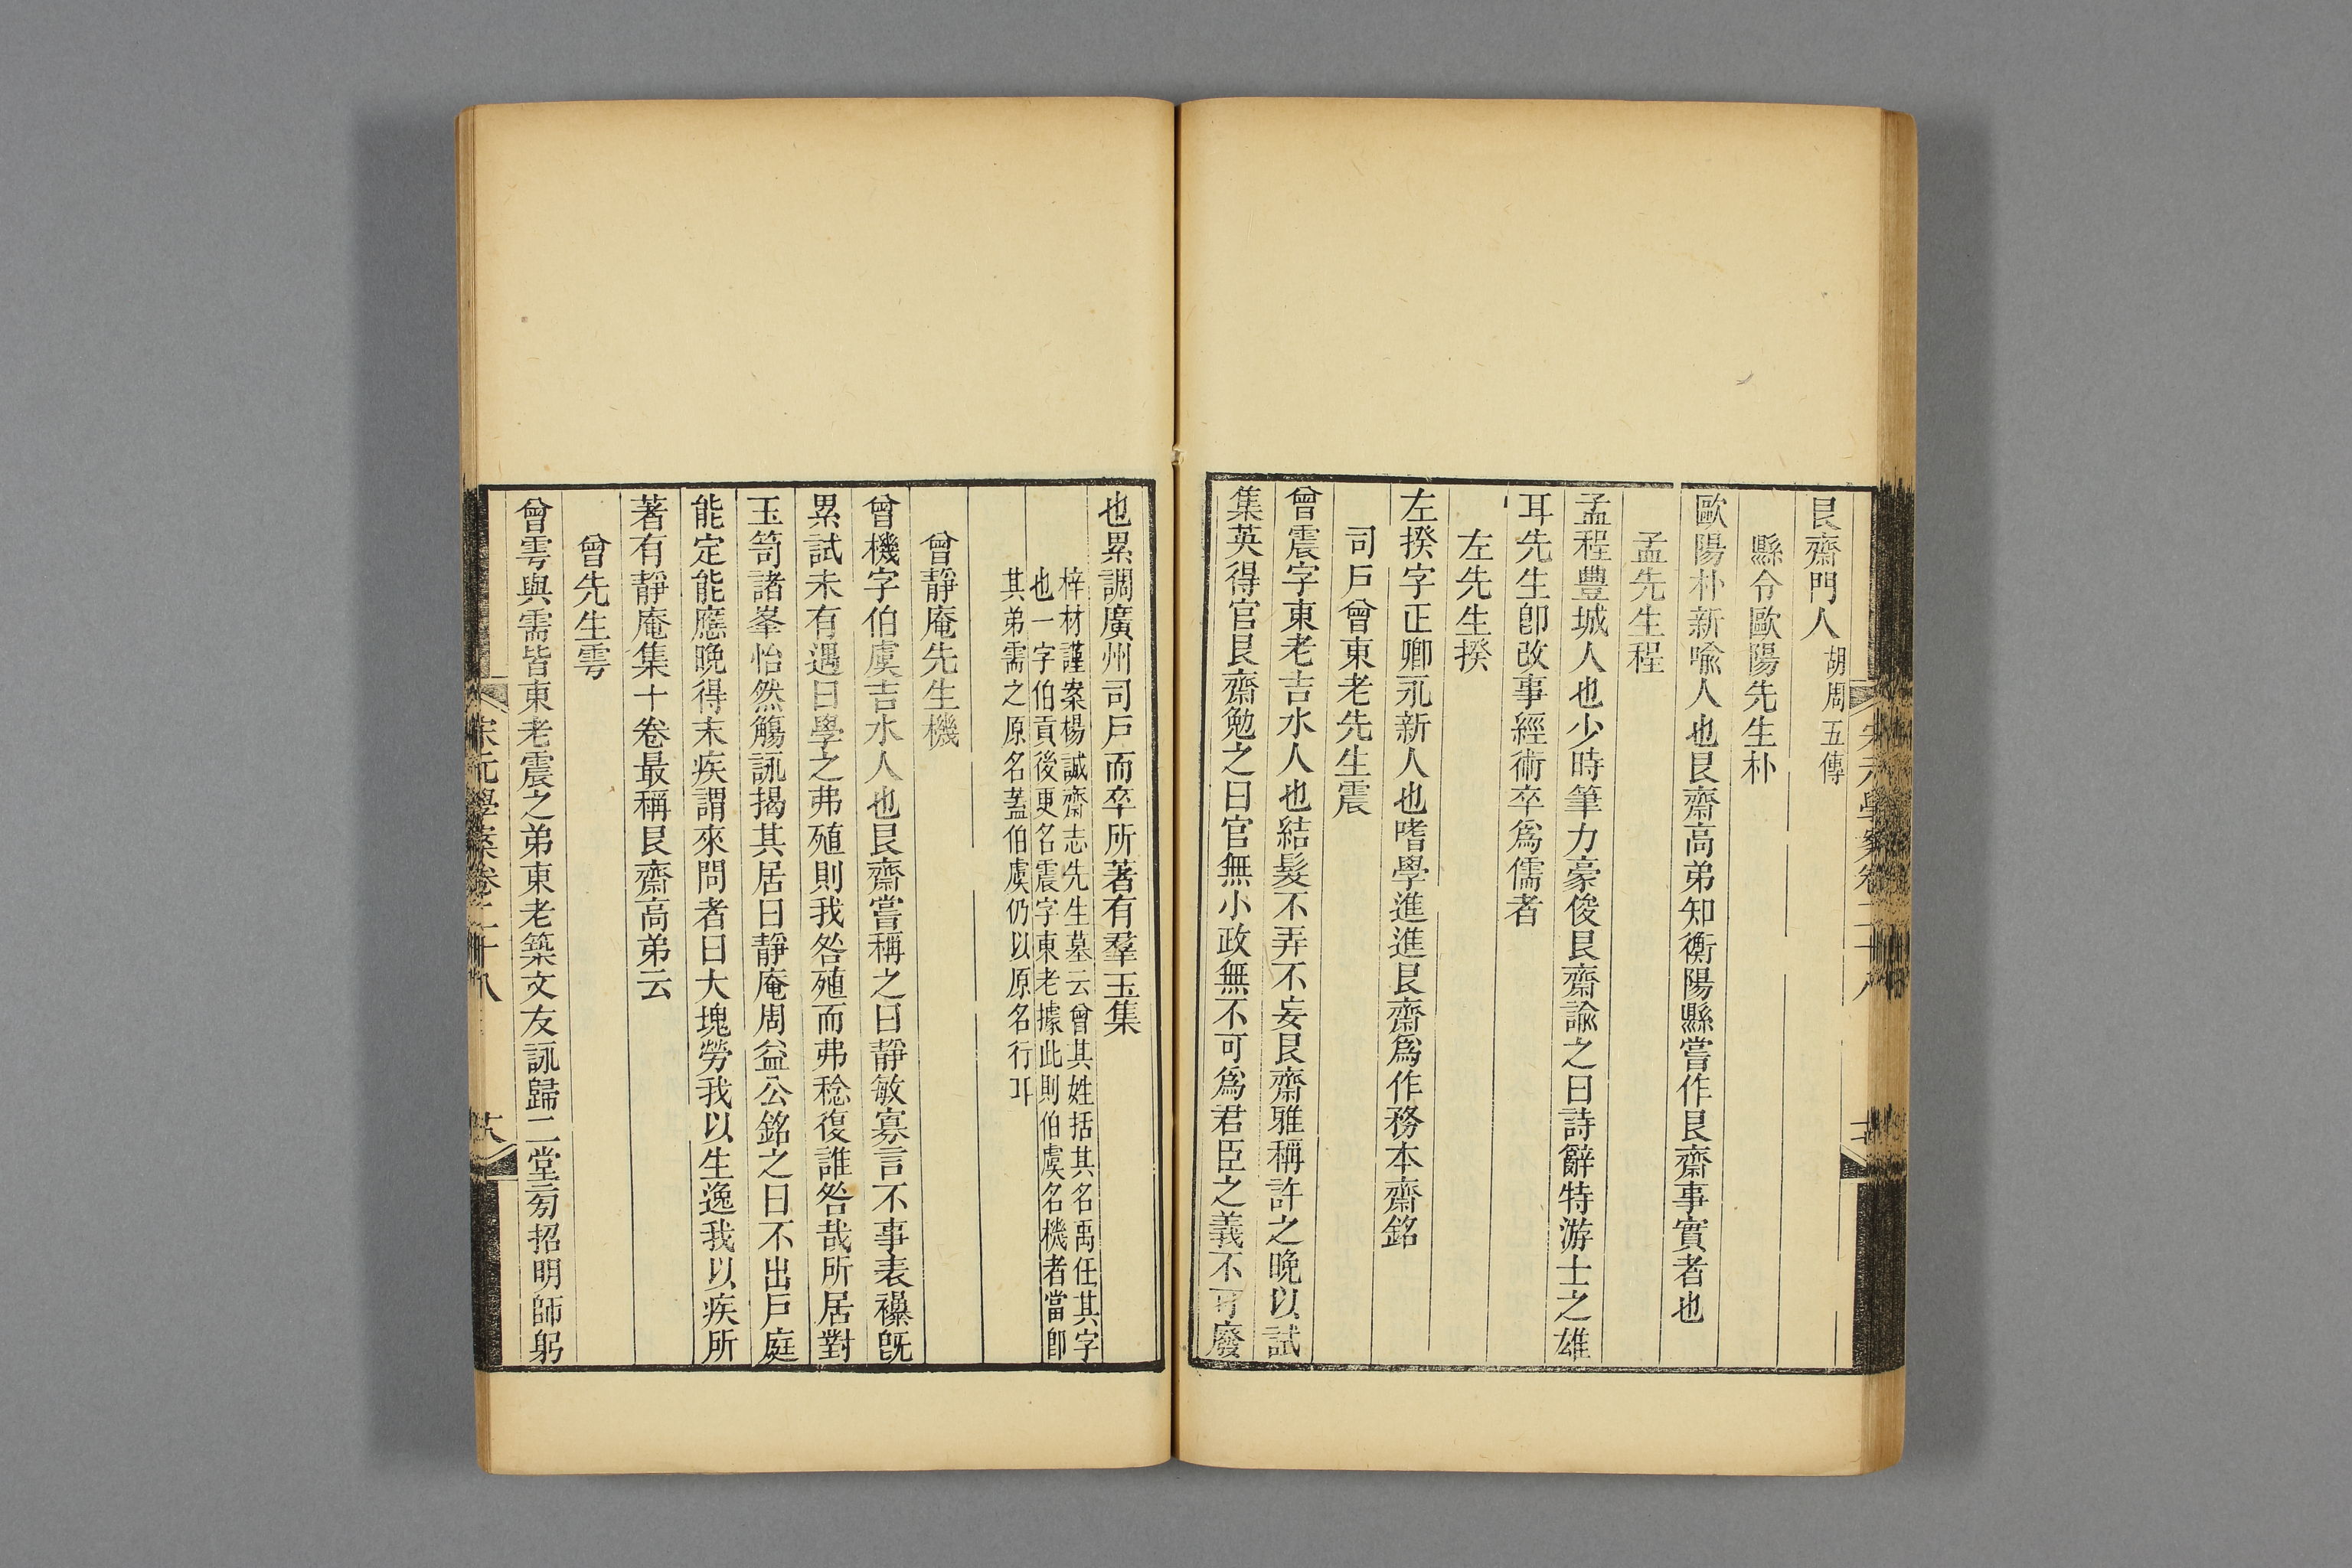 艮齋門人 胡周五傳
縣令歐陽先生朴
歐陽朴新喻人也艮齋高弟知衡陽縣嘗作艮齋事實者也
孟先生程
孟程豐城人也少時筆力豪俊艮齋諭之曰詩辭特游士之雄
耳先生卽改事經術卒爲儒者
左先生揆
左揆字正卿永新人也嗜學進進艮齋爲作務本齋銘
司戶曾東老先生震
曾震字東老吉水人也結髮不弄不妄艮齋雅稱許之晚以試
集英得官艮齋勉之曰官無小政無不可爲君臣之義不可廢
也累調廣州司戶而卒所著有羣玉集
梓材謹案楊誠齋志先生墓云曾其姓括其名禹任其字
也一字伯貢後更名震字東老據此則伯虞名機者當卽
其弟需之原名蓋伯虞仍以原名行耳
曾靜庵先生機
曾機字伯虞吉水人也艮齋嘗稱之曰靜敏寡言不事表襮旣
累試未有遇曰學之弗殖則我咎殖而弗稔復誰咎哉所居對
玉笥諸峯怡然觴詠揭其居曰靜庵周益公銘之曰不出戶庭
能定能應晚得末疾謂來問者曰大塊勞我以生逸我以疾所
著有靜庵集十卷最稱艮齋高弟云
曾先生雩
曾雩與需皆東老震之弟東老築文友詠歸二堂㫄招明師躬
宋元學案卷二十八